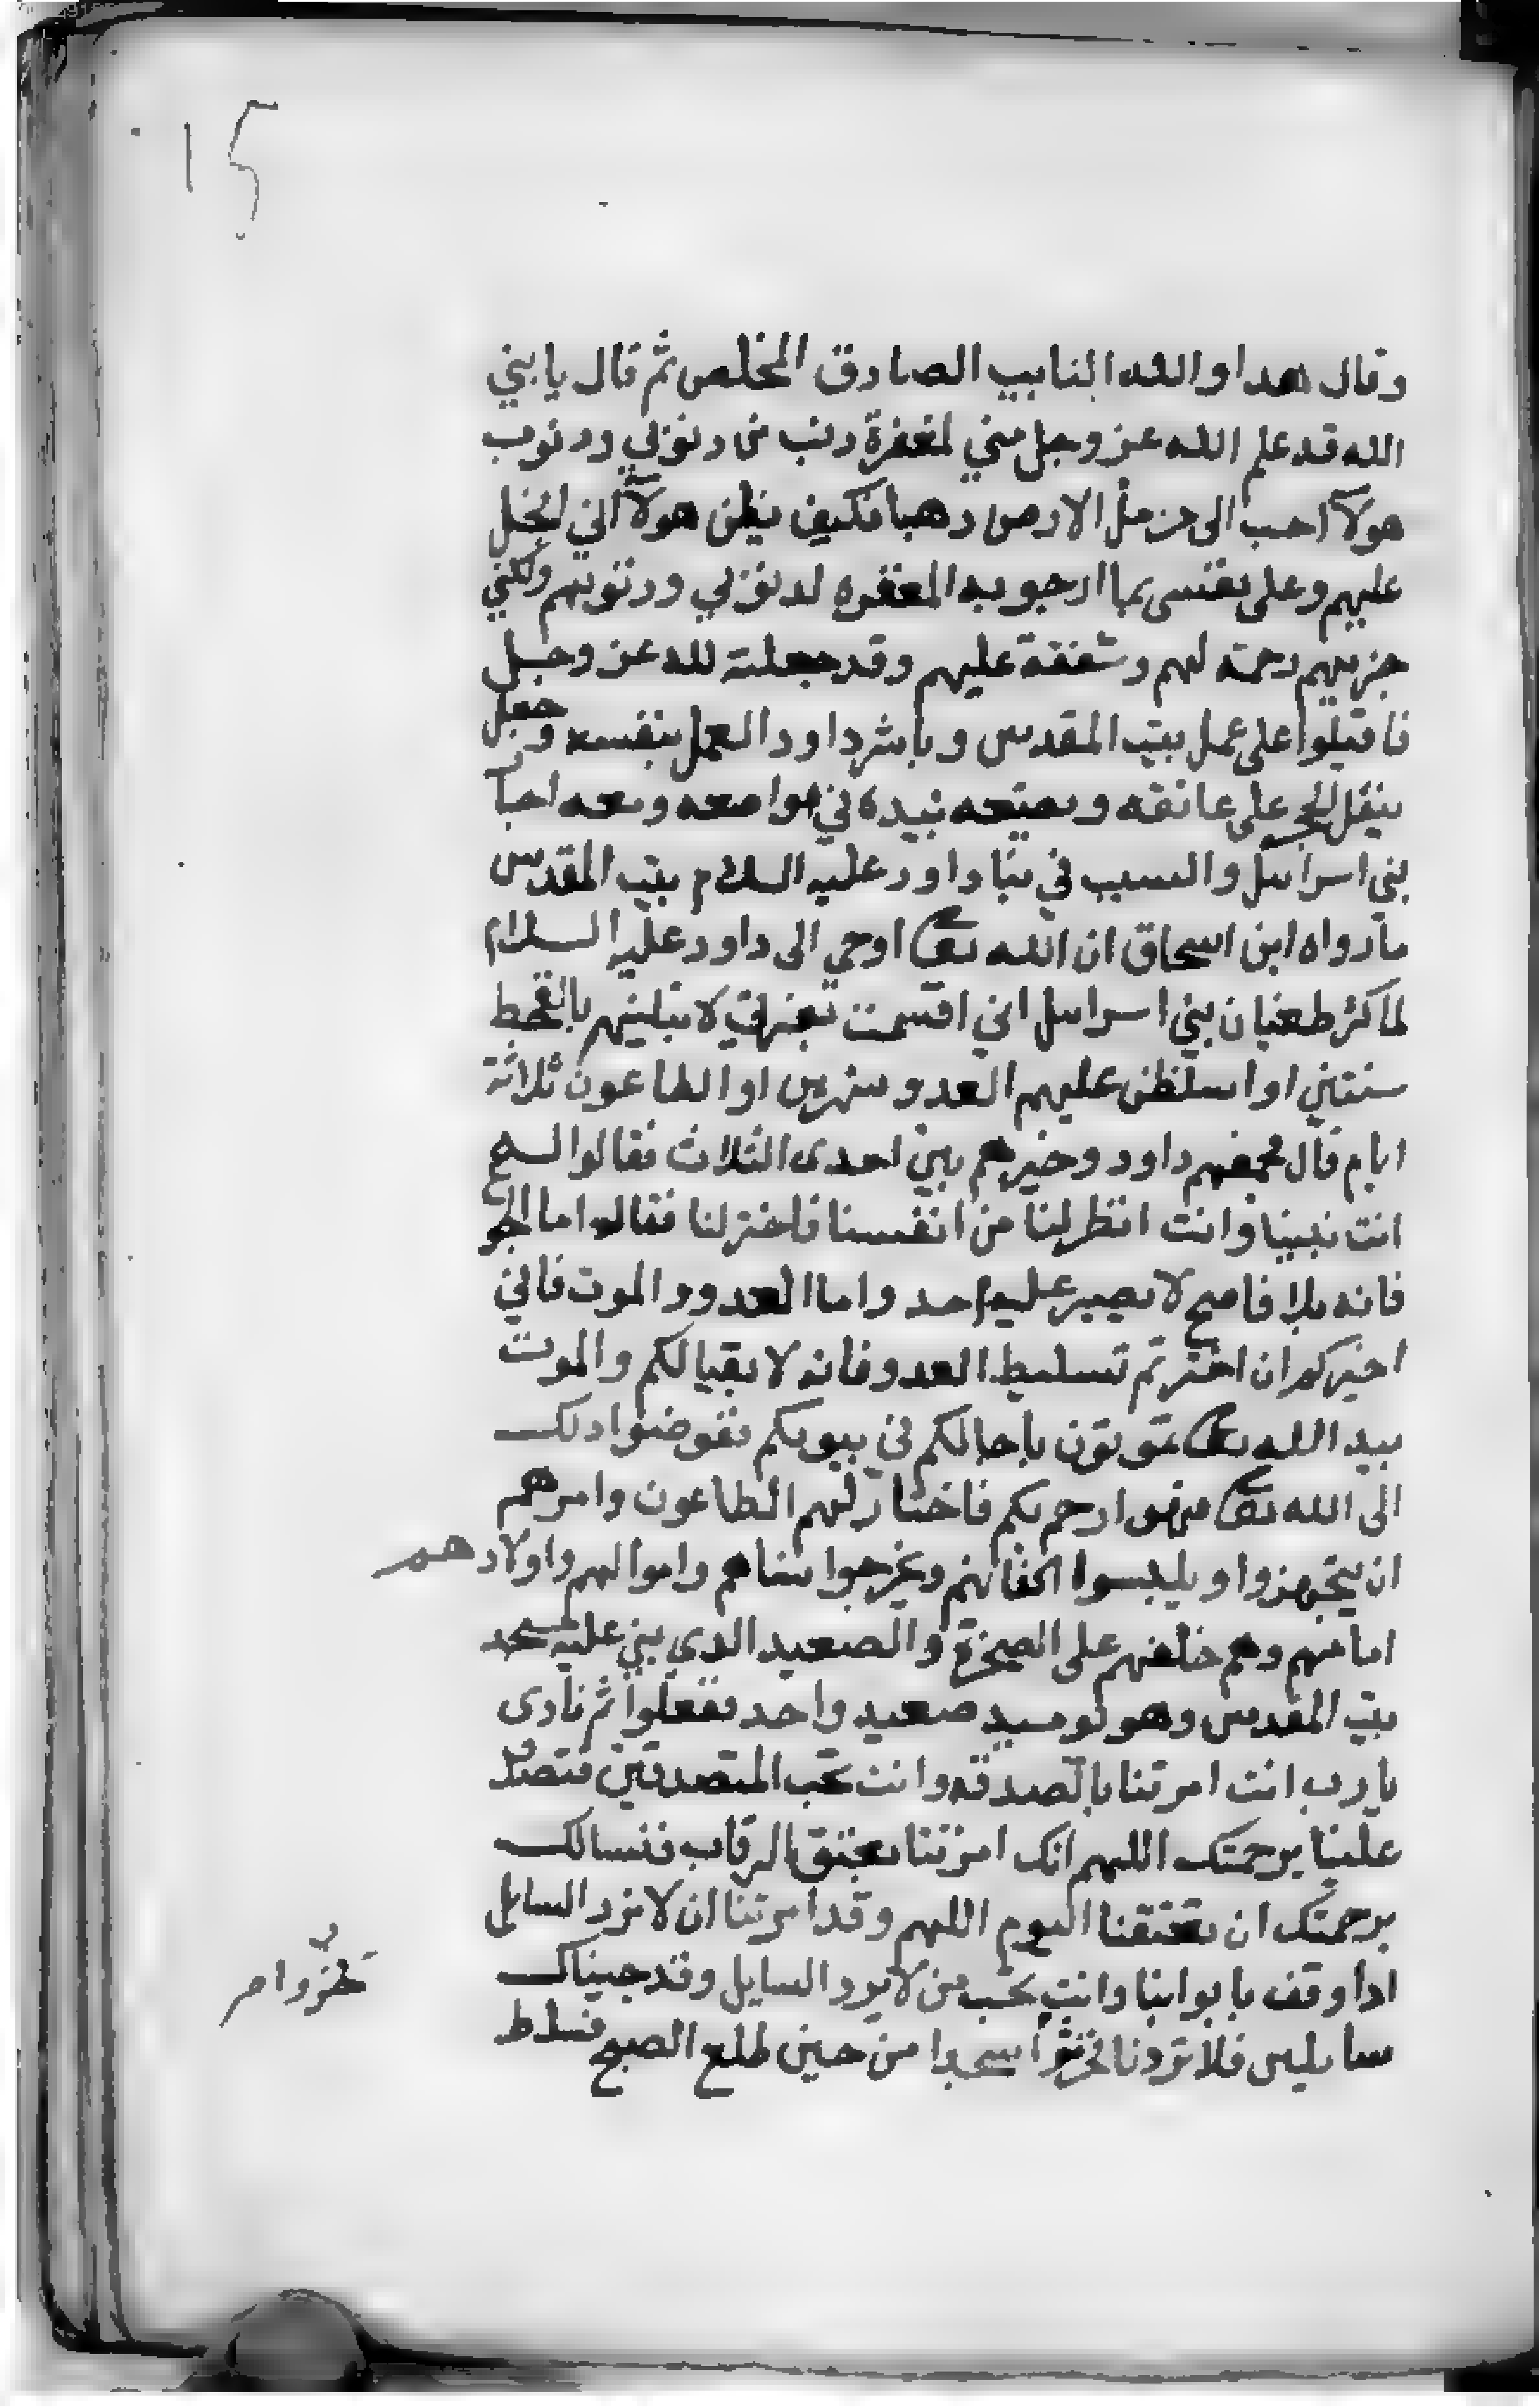 15
وقال هدا والله التايب الصادق المخلص ثم قال يا بني
الله قد علم الله عز وجل مني لمغفرة دنب من دنوبي ودنوب
هولآ احب الى من ملٔ الارض دهبا فكيف يظن هولآ اني ابخل
عليهم وعلى نفسى بما ارجو به المغفره لدنوبي ودنوبهم ولكني
جزيتهم رحمة لهم وشفقة عليهم وقد جعلته لله عز وجل
فاقبلوا على عمل بيت المقدس وباشر داود العمل بنفسه وجعل
ينقل الحجر على عاتقه ويضعه بيده في مواضعه ومعه احبار
بني اسرايل والسبب في بنا داود عليه السلام بيت المقدس
ما رواه ابن اسحاق ان الله تعا اوحي الى داود عليه السلام
لما كثر طغيان بني اسرايل اني اقسمت بعزتي لابتلينهم بالقحط
سنتين او اسلطن عليهم العدو شهرين او الطاعون ثلاثة
ايام قال فجمعهم داود وخيرهم بين احدى الثلاث فقالوا
انت نبينا وانت انظر لنا من انفسنا فاختر لنا فقال اما الجو
فانه بلا فاضح لا يصبر عليه احد واما العدو والموت فاني
اخبركم ان اخترتم تسليط العدو فانه لا بقيا لكم والموت
بيد الله تعا تموتون باجالكم في بيوتكم ففوضوا دلك
الى الله تعا فهو ارحم بكم فاختار لهم الطاعون وامرهم
ان يتجهزوا ويلبسوا اكفانهم ويخرجوا نساهم واموالهم واولادهم
امامهم وهم خلفهم على الصخرة والصعيد الدي بني عليه مسجد
بيت المقدس وهو يوميد صعيد واحد ففعلوا ثم نادى
يا رب انت امرتنا بالصدقه وانت تحب المتصدقين فتصدق
علينا برحمتك اللهم انك امرتنا بعتق الرقاب فنسالك
برحمتك ان تعتقنا اليوم اللهم وقد امرتنا ان لا نرد السايل
ادا وقف بابوابنا وانت تحب من لا يرد السايل وقد جيناك
سايلين فلا تردنا سجدا من حين طلع الصبح فسلط